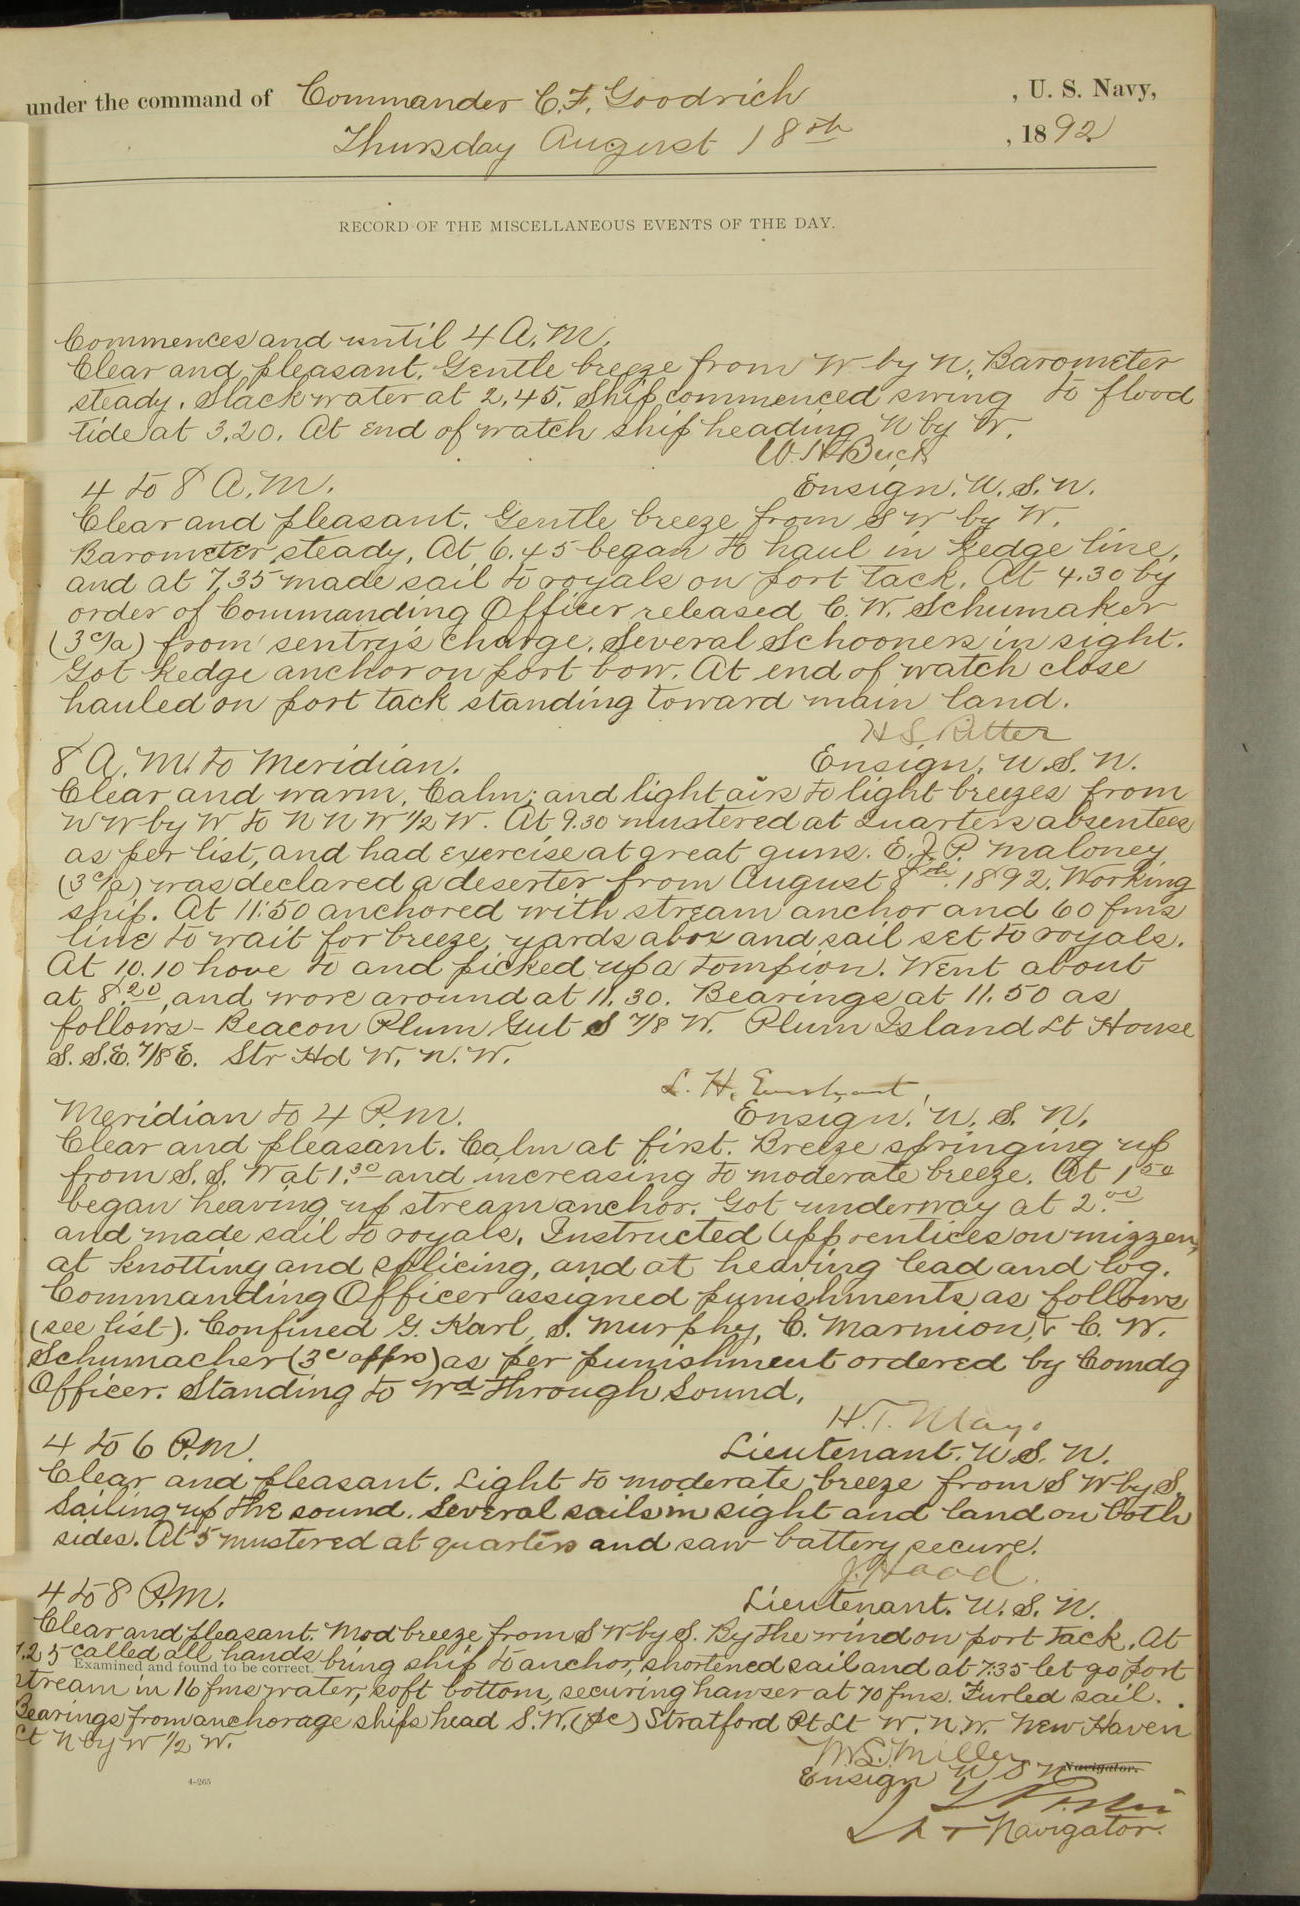 under the command of Commander C. F. Goodrich , U. S. Navy,
Thursday August 18th , 1892
RECORD OF THE MISCELLANEOUS EVENTS OF THE DAY.
Commences and until 4 A.M.
Clear and pleasant. Gentle breeze from W by N. Barometer
steady. Slack water at 2.45. Ship commenced swing to flood
tide at 3.20. At end of watch ship heading N by W.
W. H. Buck
4 to 8 A.M. Ensign. U. S. N.
Clear and pleasant. Gentle breeze from SW by W.
Barometer steady. At 6.45 began to haul in Kedge line,
and at 7.35 made sail to royals on port tack. At 4.30 by
order of Commanding Officer released C. W. Schumaker
(3c/a) from sentry's charge. Several Schooners in sight.
Got Kedge anchor on port bow. At end of watch close
hauled on port tack standing toward main land.
H S. Ritter
8 A.M. to Meridian. Ensign. U.S. N.
Clear and warm. Calm; and light airs to light breezes from
W by W to N N W 1/2 W. At 9.30 mustered at Quarters absentees
as per list, and had exercise at great guns. E. J. P. Maloney
(3c/a) was declared a deserter from August 8th. 1892. Working
ship. At 11:50 anchored with stream anchor and 60 fms
line to wait for breeze, yards abox and sail set to royals.
At 10.10 hove to and picked up a tompion. Went about
at 8.20, and wore around at 11.30. Bearings at 11.50 as
follows - Beacon Plum Gut S 7/8 W. Plum Island Lt House
S. S.E. 7/8 E. Str Hd W. N. W.
L. H.
Meridian to 4 P.M. Ensign. U. S. N.
Clear and pleasant. Calm at first. Breeze springing up
from S. S. W at 1.30 and increasing to moderate breeze. At 1 50
began heaving up stream anchor. Got underway at 2.00
and made sail to royals. Instructed Apprentices on mizzen,
at knotting and splicing, and at heaving lead and log.
Commanding Officer assigned punishments as follows
(see list). Confined G. Karl, S. Murphy, C. Marmion, & C. W.
Schumacher (3c apprs) as per punishment ordered by Comdg
Officer. Standing to Wd through Sound.
H. T. Mayo
4 to 6 P.M. Lieutenant. U.S. N.
Clear and pleasant. Light to moderate breeze from S W by S.
Sailing up the sound. Several sails in sight and land on both
sides. At 5 mustered at quarters and saw battery secure.
J. Hood
4 to 8 P.M. Lieutenant. U. S. N.
Clear and pleasant. Mod breeze from SW by S. By the wind on port tack. At
7.25 called all hands bring ship to anchor, shortened sail and at 7:35 let go port
Examined and found to be correct.
stream in 16 fms water, soft bottom, securing hawser at 70 fms. Furled sail.
Bearings from anchorage ships head S.W. (pc) Stratford Pt Lt W. N.W. New Haven
Lt N by W 1/2 W.
M.S. Miller
Ensign U S N Navigator.
Lt + Navigator.
4-265